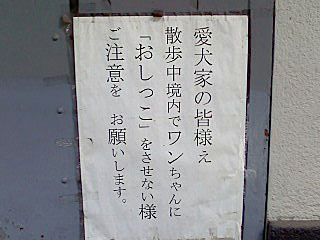 愛犬家の皆様え
散歩中境内でワンちゃんに
「おしっこ」をさせない様
ご注意を お願いします。